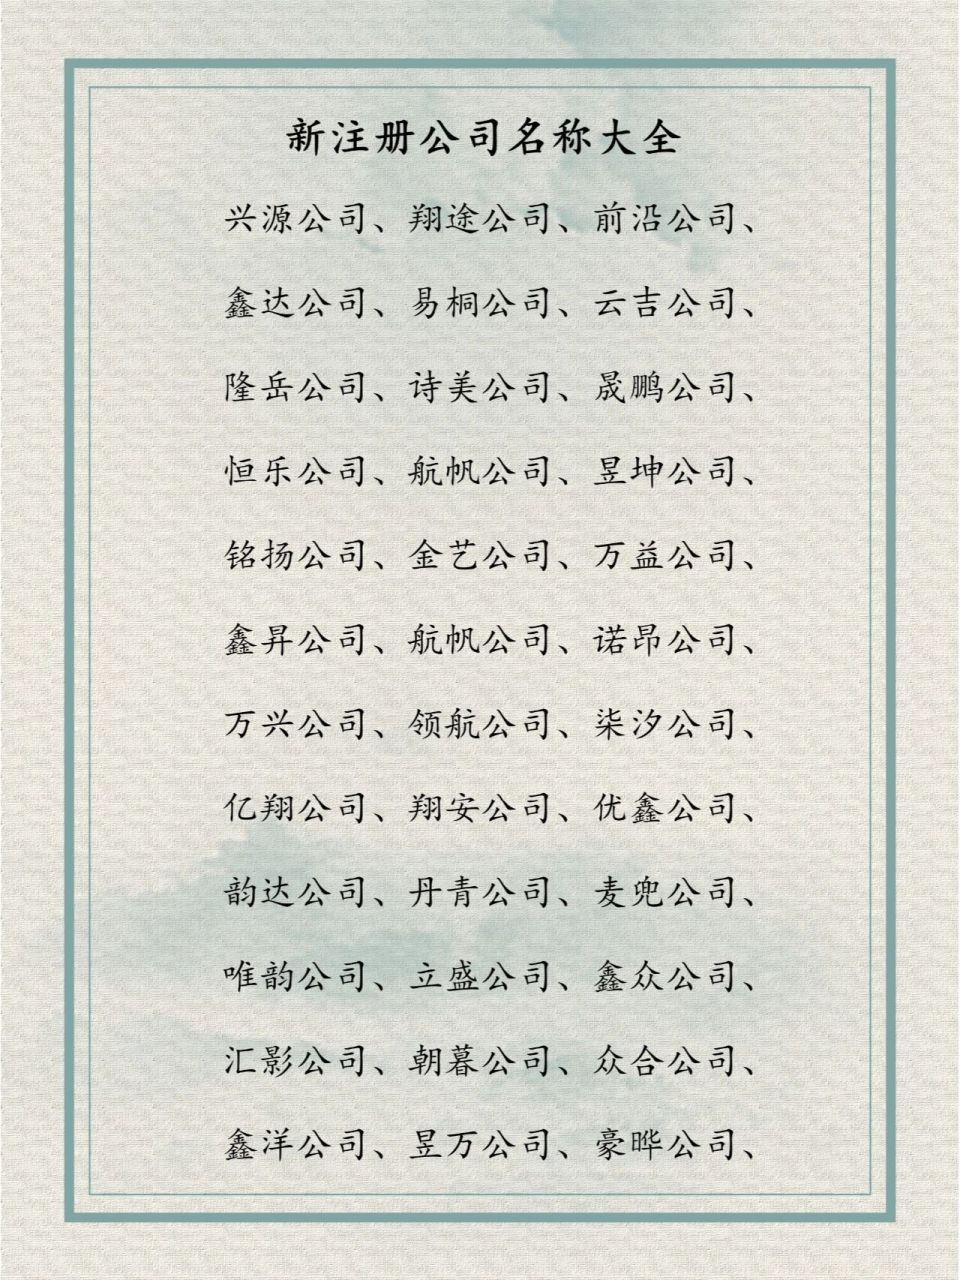 新注册公司名称大全
兴源公司、翔途公司、前沿公司、
鑫达公司、易桐公司、云吉公司、
隆岳公司、诗美公司、晟鹏公司、
恒乐公司、航帆公司、昱坤公司、
铭扬公司、金艺公司、万益公司、
鑫昇公司、航帆公司、诺昂公司、
万兴公司、领航公司、柒汐公司、
亿翔公司、翔安公司、优鑫公司、
韵达公司、丹青公司、麦兜公司、
唯韵公司、立盛公司、鑫众公司、
汇影公司、朝暮公司、众合公司、
鑫洋公司、昱万公司、豪晔公司、